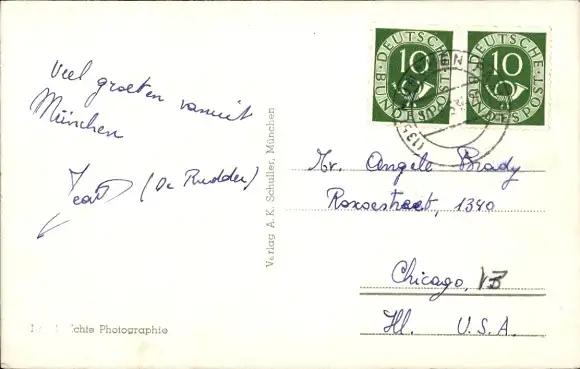 Veel groeten vanuit
München
Jean (De Rudder)
Verlag A. K. Schuller, München
chte Photographie
DEUTSCHE BUNDESPOST
10
DEUTSCHE BUNDESPOST
10
Mr. Angelo Brady
Roscoestraat, 1340
Chicago,
Ill. U.S.A.